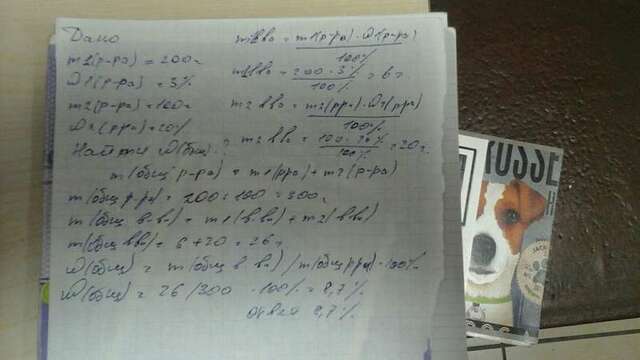 Дано
m1(р-ра) = 200г
ω1(р-ра) = 3%
m2(р-ра) = 100г
ω2(рра) = 20%
Найти ω(общ) - ?
m1 вва = m1(р-ра) · ω1(р-ра)
100%
m1вва = 200 · 3% = 6г
100%
m2 вва = m2(рра) · ω2(рра)
100%
m2 вва = 100 · 20% = 20г.
100%
m(общ р-ра) = m1(рра) + m2(р-ра)
m(общ р-ра) = 200+100 = 300г
m(общ в-ва) = m1(в-ва) + m2(вва)
m(общ вва) = 6+20 = 26г
ω(общ) = m(общ в-ва) / m(общ рра) · 100%
ω(общ) = 26/300 · 100% = 8,7%
ответ 8,7%
RUSSE
JACK